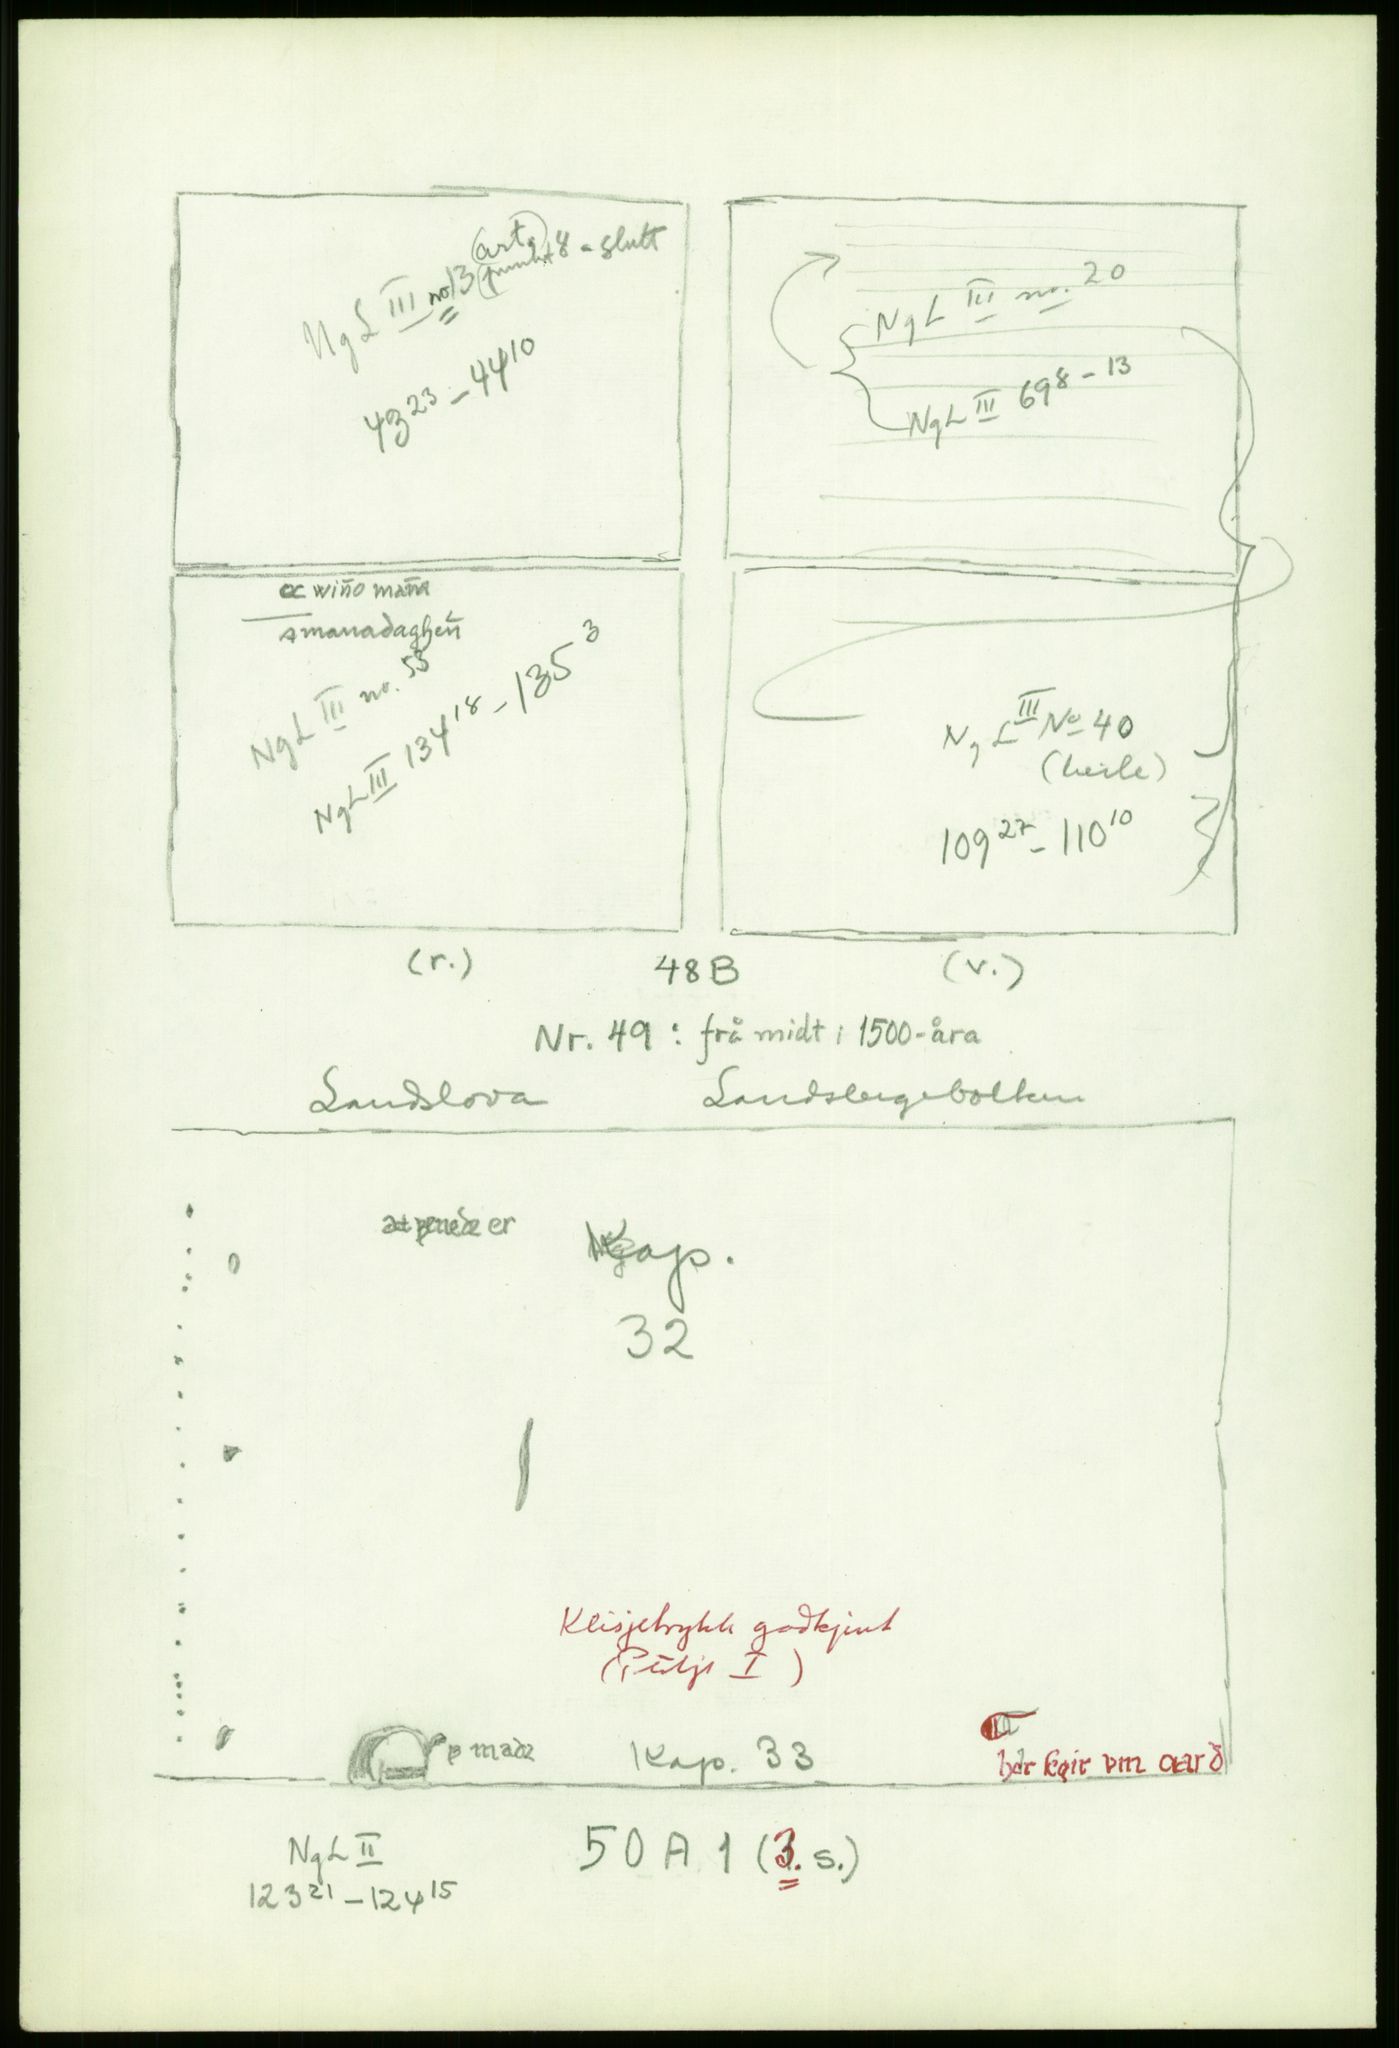 (art.)
NgL III no 13 punkt 8 - slutt
43²³ - 44¹⁰
NgL III no. 20
NgL III 69⁸ - ¹³
oc wiño mana
amanadagheñ
NgL III no. 53
NgL III 134¹⁸ - 135³
NgL III No 40
(heile)
109²⁷ - 110¹⁰
(r.) 48 B (v.)
Nr. 49 : frå midt i 1500-åra
Landslova Landsleigebolken
er
Kap.
32
Klisjetrykk godkjent
(Pulje I)
Kap. 33
NgL II
123²¹ - 124¹⁵
50 A 1 (3. s.)